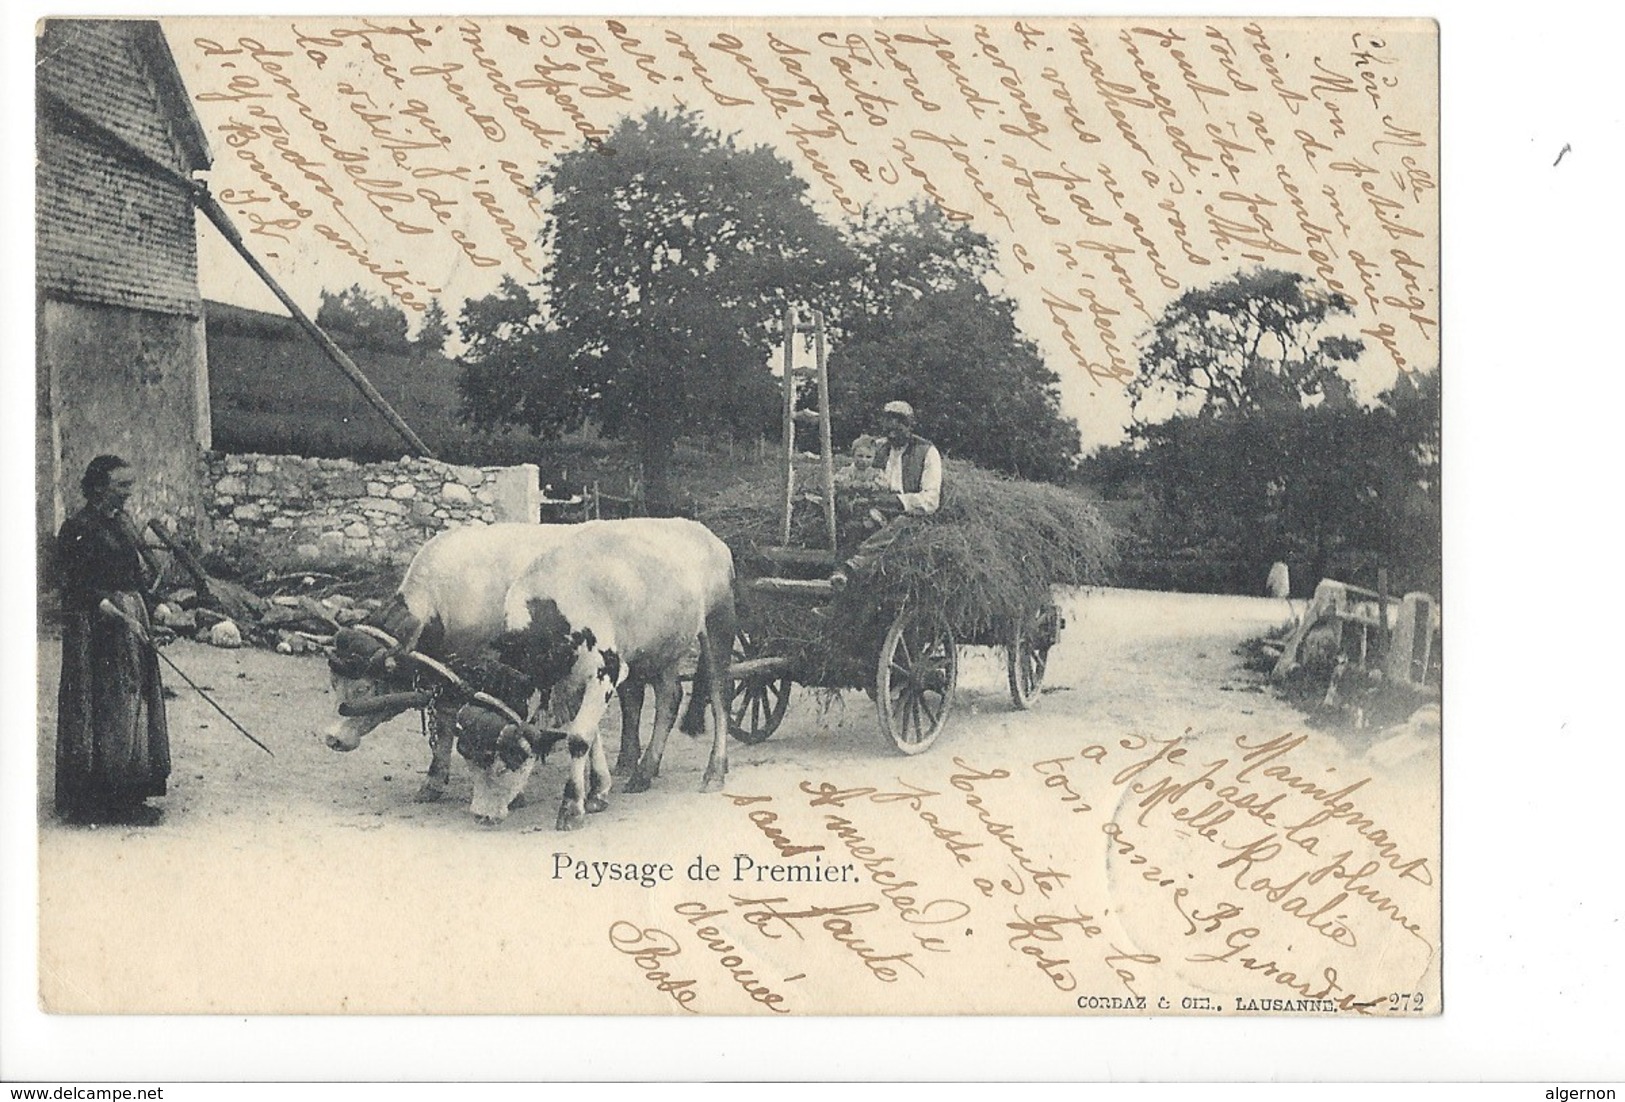 Chère Melle
Mon petit doigt
vient de me dire que
vous ne rentrerez
peut être pas
mercredi. Ah,
malheur à vous
si vous ne nous
revenez pas pour
jeudi, vous n'osez
nous jouer ce tour.
Faites nous
savoir à
quelle heure
vous
arri
verez
à Ependes
mercredi
je pense un
peu que j'aurai
la visite de ces
demoiselles
d'Yverdon
Bonnes amitiés
I. L.
Maintenant
je passe la plume
à Melle Rosalie
ton amie R Girardin
Ensuite je la
passe à Rose
A mercredi
sans faute
ta
dévouée
Rose
Paysage de Premier.
CORBAZ & CIE., LAUSANNE. — 272
www.delcampe.net
algernon